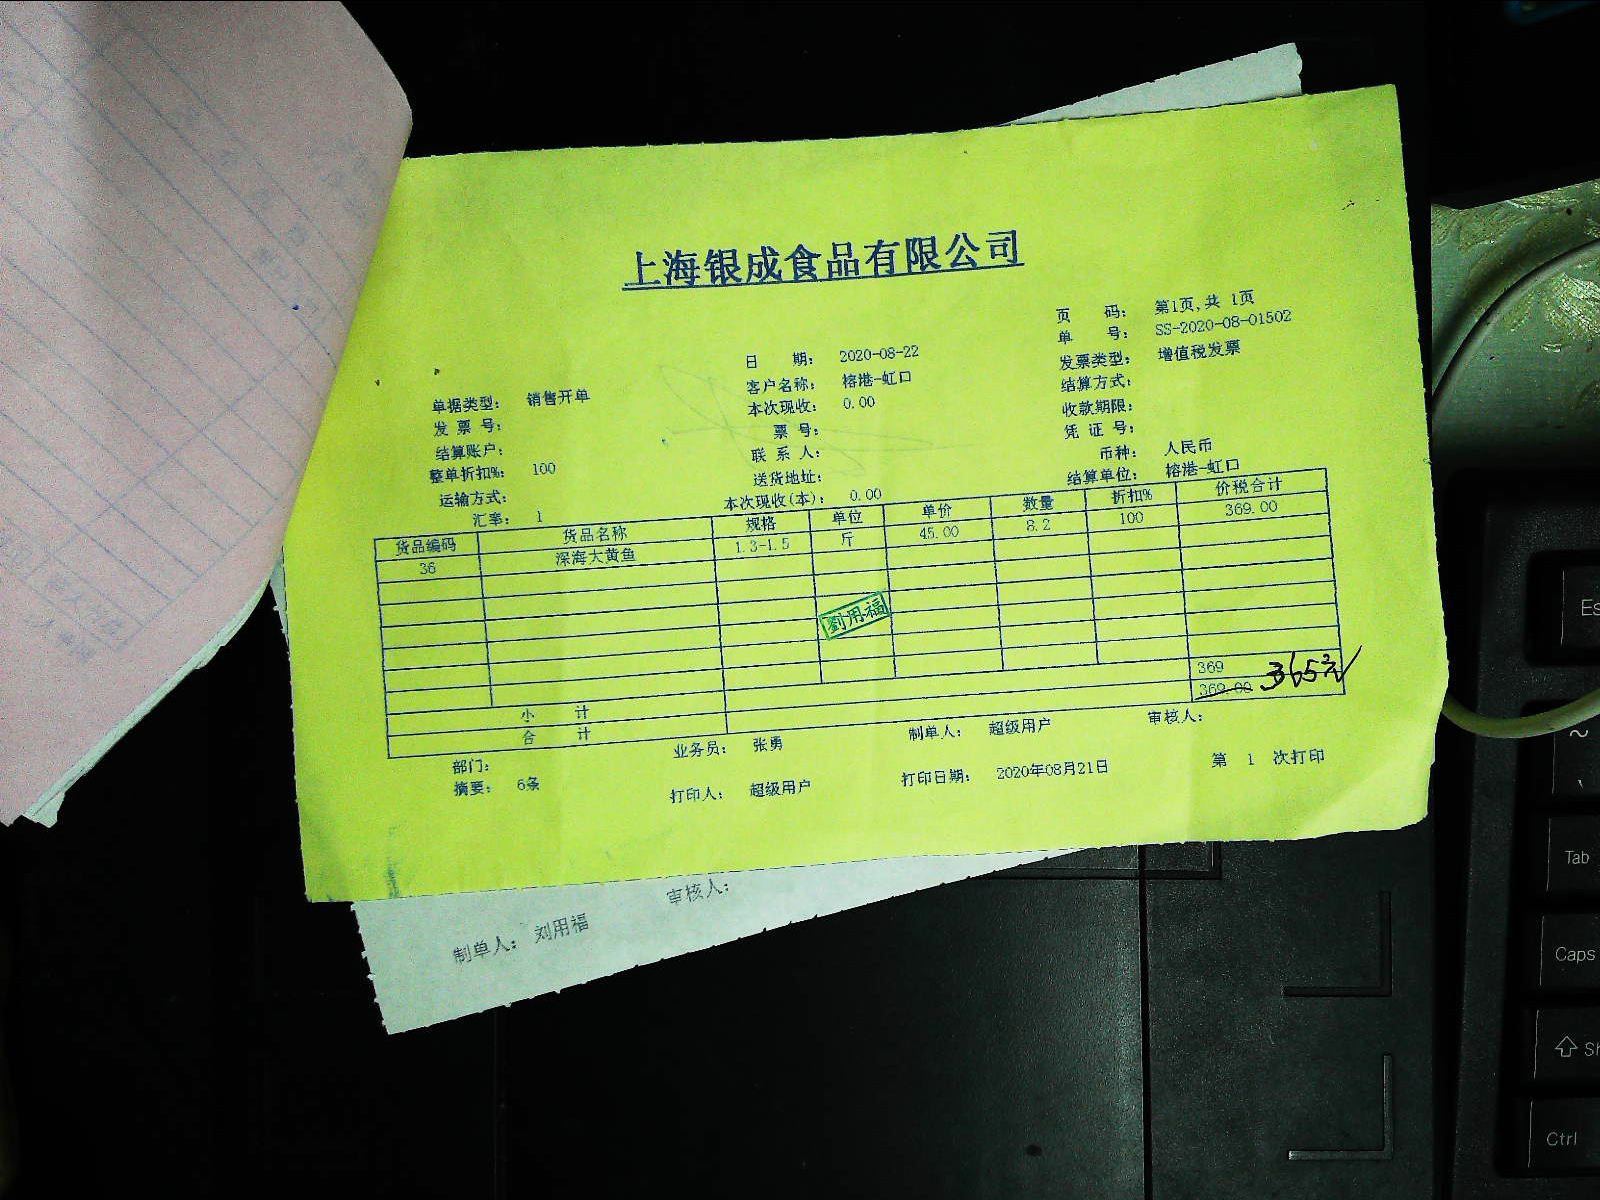 上海银成食品有限公司
页 码: 第1页,共 1页
单 号: SS-2020-08-01502
单据类型: 销售开单 日 期: 2020-08-22 发票类型: 增值税发票
发 票 号: 客户名称: 榕港-虹口 结算方式:
结算账户: 本次现收: 0.00 收款期限:
整单折扣%: 100 票 号: 凭 证 号:
运输方式: 联 系 人: 币种: 人民币
汇率: 1 送货地址: 结算单位: 榕港-虹口
本次现收(本): 0.00
货品编码 货品名称 规格 单位 单价 数量 折扣% 价税合计
36 深海大黄鱼 1.3-1.5 斤 45.00 8.2 100 369.00
劉用福
小 计 369
合 计 369.00 365元
部门: 业务员: 张勇 制单人: 超级用户 审核人:
摘要: 6条 打印人: 超级用户 打印日期: 2020年08月21日 第 1 次打印
制单人: 刘用福 审核人:
Es
~
Tab
Caps
Sh
Ctrl